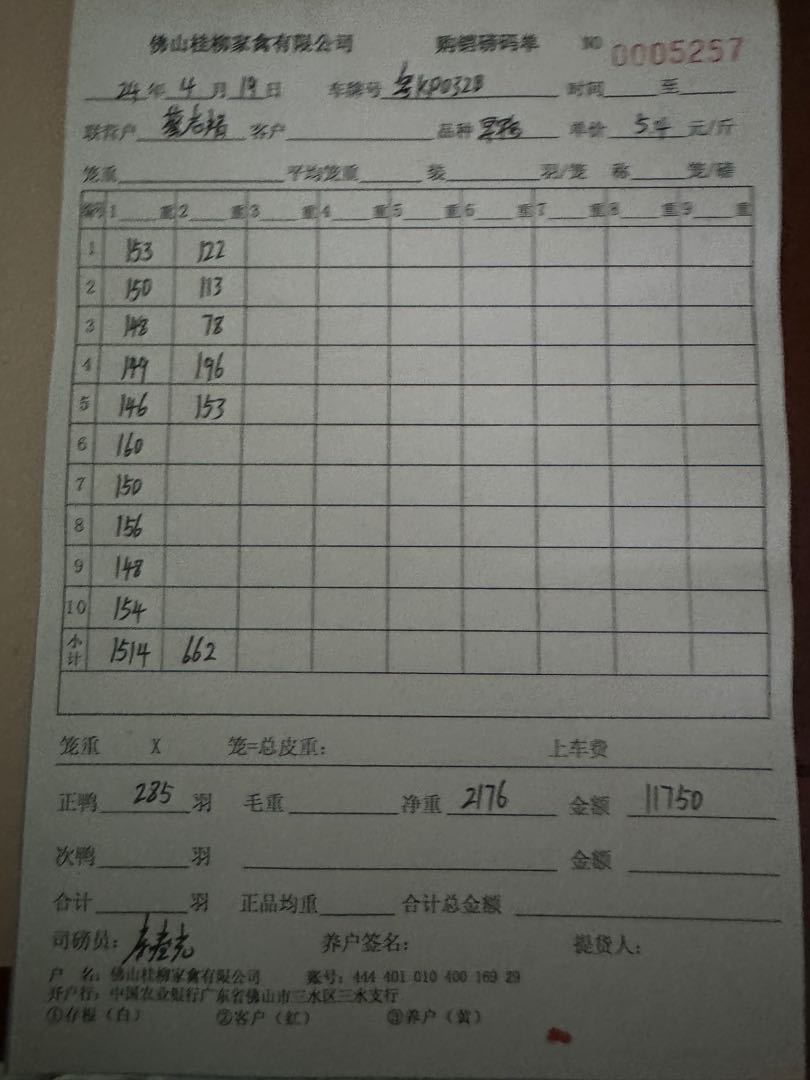 佛山桂柳家禽有限公司 购销磅码单 NO 0005257
24 年 4 月 19 日 车牌号 KP0328 时间 至
联营户 客户 品种 单价 5.4 元/斤
笼重 平均笼重 装 羽/笼 称 笼/磅
编号 1 重 2 重 3 重 4 重 5 重 6 重 7 重 8 重 9 重
1 153 122
2 150 113
3 148 78
4 149 196
5 146 153
6 160
7 150
8 156
9 148
10 154
小计 1514 662
笼重 X 笼=总皮重: 上车费
正鸭 285 羽 毛重 净重 2176 金额 11750
次鸭 羽 金额
合计 羽 正品均重 合计总金额
司磅员: 养户签名: 提货人:
户 名: 佛山桂柳家禽有限公司 账号: 444 401 010 400 169 29
开户行: 中国农业银行广东省佛山市三水区三水支行
①存根(白) ②客户(红) ③养户(黄)